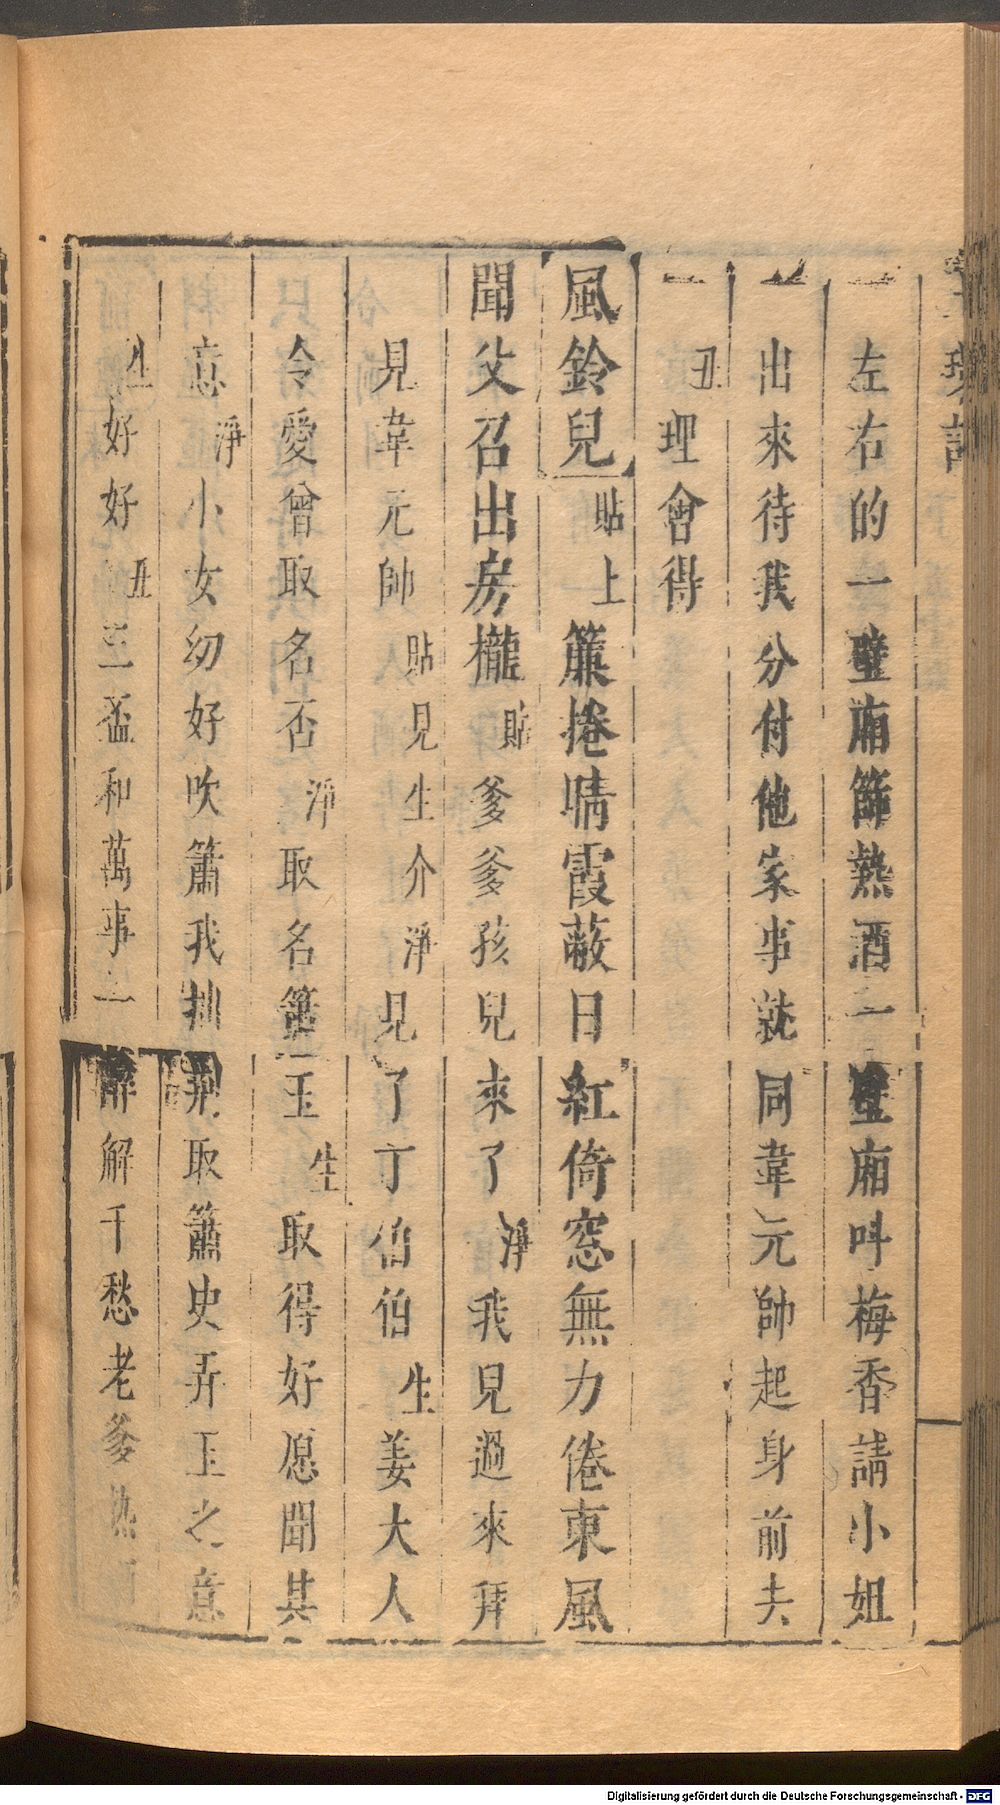 左右的一壁廂篩熱酒一壁廂呌梅香請小姐
出來待我分付他家事就同韋元帥起身前去
丑理會得
風鈴兒貼上簾捲晴霞蔽日紅倚窓無力倦東風
聞父召出房櫳貼爹爹孩兒來了淨我兒過來拜
見韋元帥貼見生介淨見了丁伯伯生姜大人
令愛曾取名否淨取名簫玉生取得好愿聞其
意淨小女幼好吹簫我拙荆取簫史弄玉之意
生好好丑三盃和萬事一醉解千愁老爹热酒
Digitalisierung gefördert durch die Deutsche Forschungsgemeinschaft - DFG